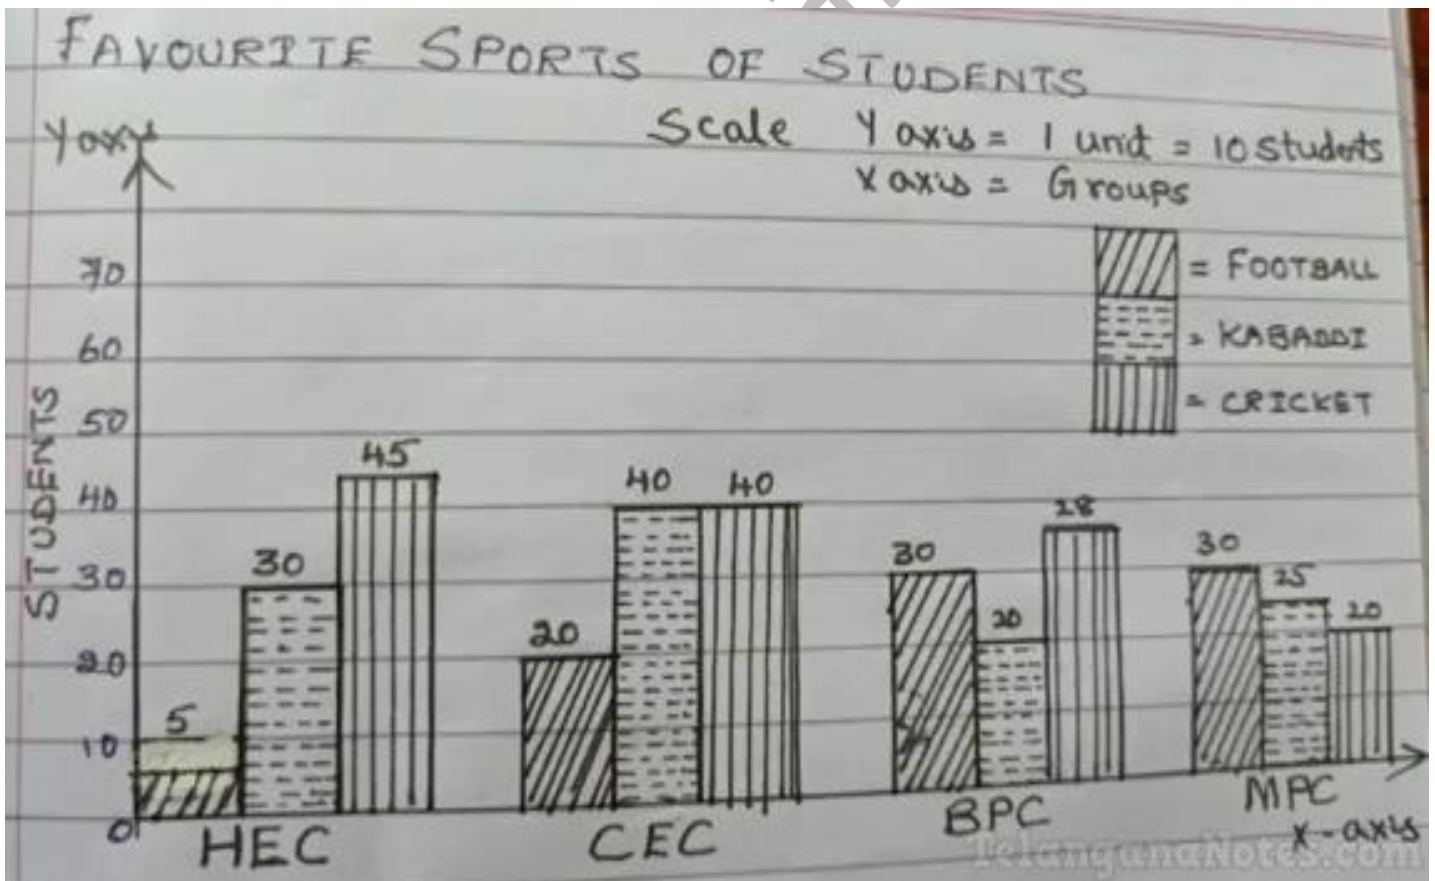 FAVOURITE SPORTS OF STUDENTS
Y axis
Scale Y axis = 1 unit = 10 students
X axis = Groups
= FOOTBALL
= KABADDI
= CRICKET
STUDENTS
70
60
50
40
30
20
10
0
5 30 45
20 40 40
30 20 28
30 25 20
HEC CEC BPC MPC
X-axis
TelanganaNotes.com